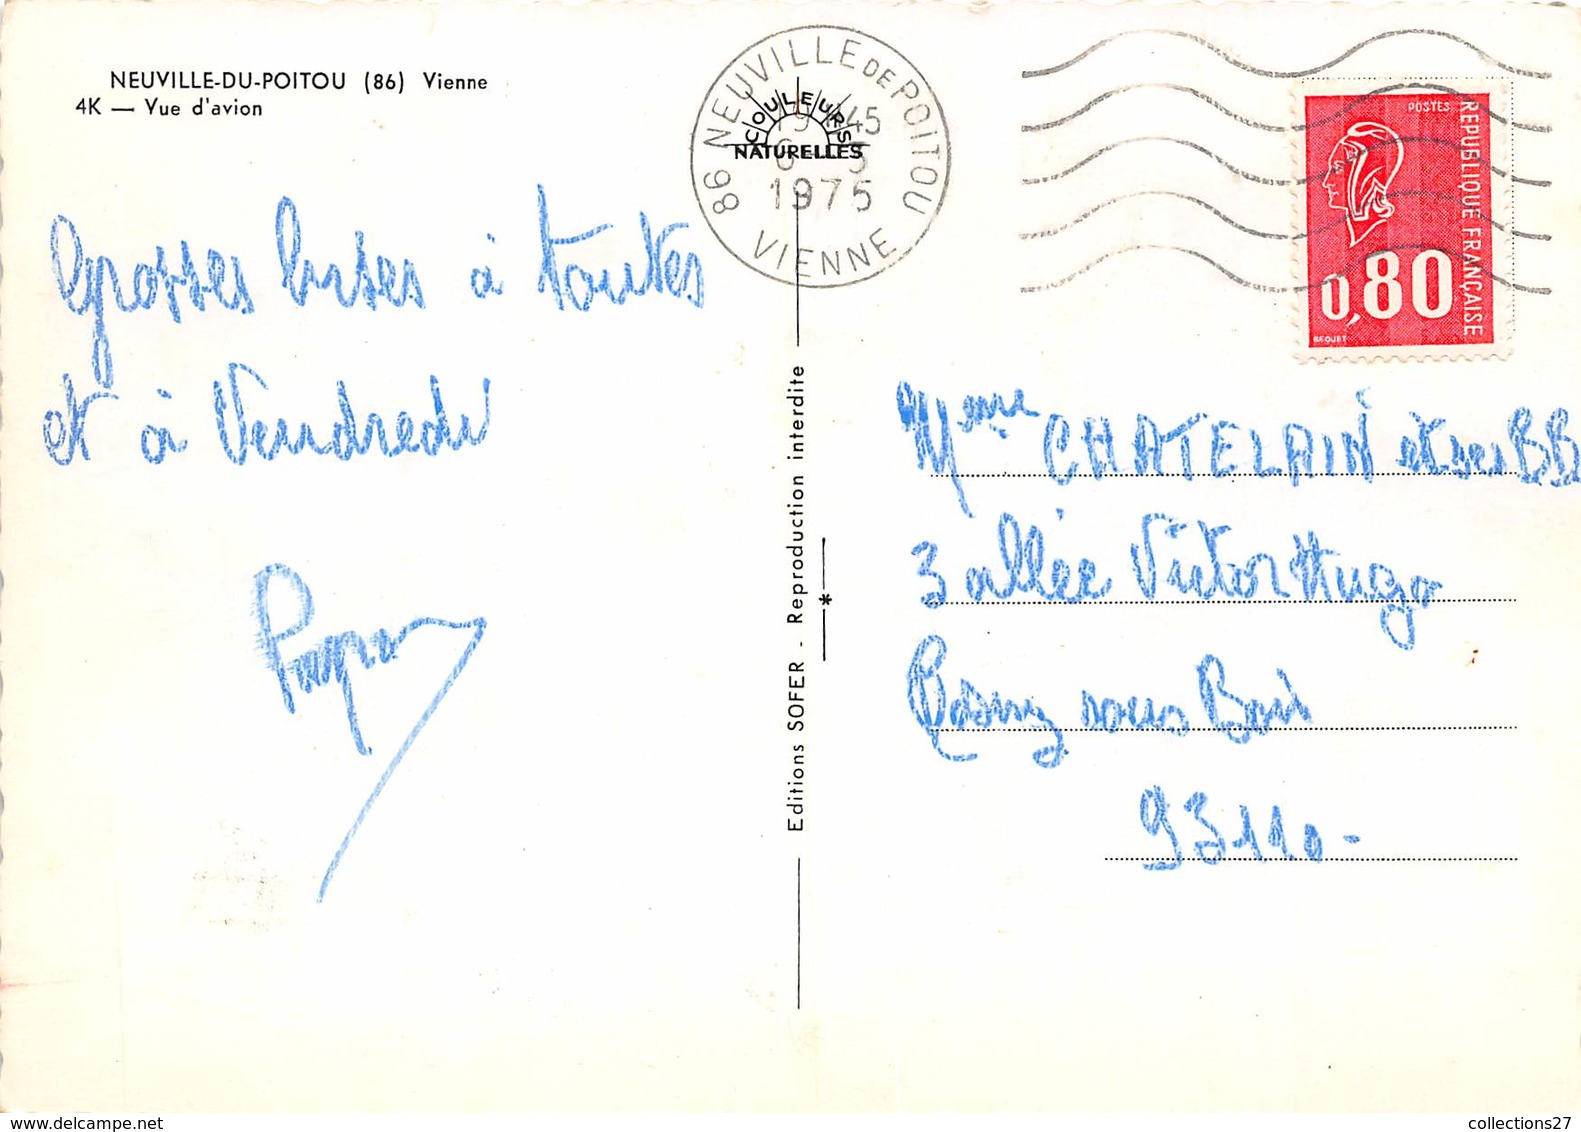 NEUVILLE-DU-POITOU (86) Vienne
4K — Vue d'avion
86 NEUVILLE DE POITOU
VIENNE
19 H 45
6 - 5
1975
COULEURS
NATURELLES
POSTES
REPUBLIQUE FRANÇAISE
0,80
BEQUET
Grosses bises à toutes
et à Vendredi
Editions SOFER - Reproduction interdite
*
Mme CHATELAIN et ses BB
3 allée Victor Hugo
Rosny sous Bois
93110-
collections27